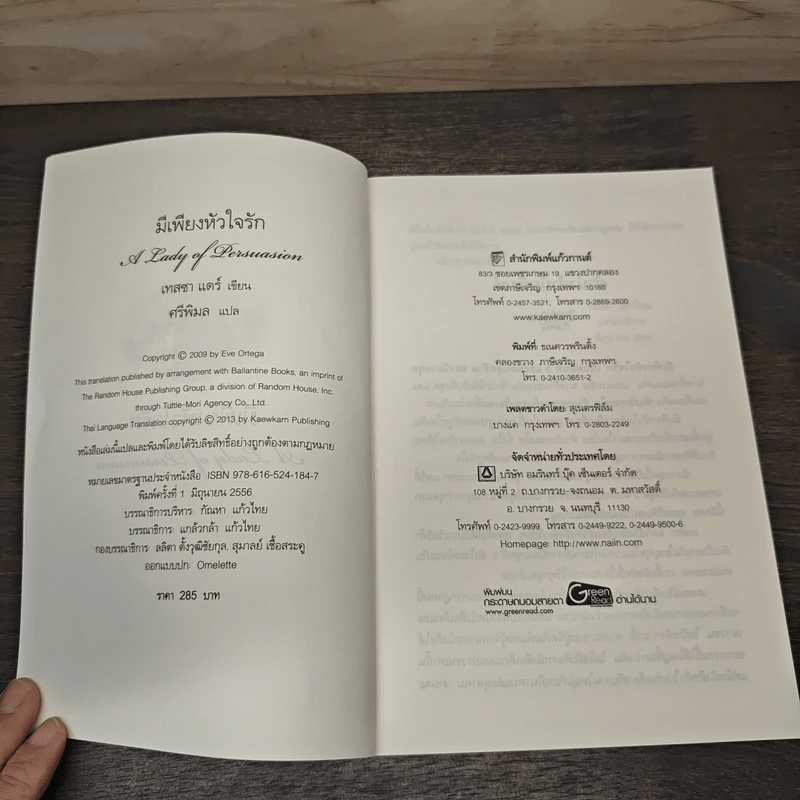 มีเพียงหัวใจรัก
A Lady of Persuasion
เทสซา แดร์ เขียน
ศรีพิมล แปล
Copyright © 2009 by Eve Ortega
This translation published by arrangement with Ballantine Books, an imprint of
The Random House Publishing Group, a division of Random House, Inc.
through Tuttle-Mori Agency Co., Ltd.
Thai Language Translation copyright © 2013 by Kaewkarn Publishing
หนังสือเล่มนี้แปลและพิมพ์โดยได้รับลิขสิทธิ์อย่างถูกต้องตามกฎหมาย
หมายเลขมาตรฐานประจำหนังสือ ISBN 978-616-524-184-7
พิมพ์ครั้งที่ 1 มิถุนายน 2556
บรรณาธิการบริหาร: กัณหา แก้วไทย
บรรณาธิการ: แกล้วกล้า แก้วไทย
กองบรรณาธิการ: ลลิตา ตั้งวุฒิชัยกุล, สุมาลย์ เชื้อสระคู
ออกแบบปก: Omelette
ราคา 285 บาท
สำนักพิมพ์แก้วกานต์
83/3 ซอยเพชรเกษม 19 แขวงปากคลอง
เขตภาษีเจริญ กรุงเทพฯ 10160
โทรศัพท์ 0-2457-3521, โทรสาร 0-2869-2600
www.kaewkarn.com
พิมพ์ที่: ธเนศวรพรินติ้ง
คลองขวาง ภาษีเจริญ กรุงเทพฯ
โทร. 0-2410-3651-2
เพลตขาวดำโดย: สุเนตรฟิล์ม
บางแค กรุงเทพฯ โทร. 0-2803-2249
จัดจำหน่ายทั่วประเทศโดย
บริษัท อมรินทร์ บุ๊ค เซ็นเตอร์ จำกัด
108 หมู่ที่ 2 ถ.บางกรวย-จงถนอม ต. มหาสวัสดิ์
อ. บางกรวย จ. นนทบุรี 11130
โทรศัพท์ 0-2423-9999 โทรสาร 0-2449-9222, 0-2449-9500-6
Homepage: http://www.naiin.com
พิมพ์บน
กระดาษถนอมสายตา Green Read อ่านได้นาน
www.greenread.com